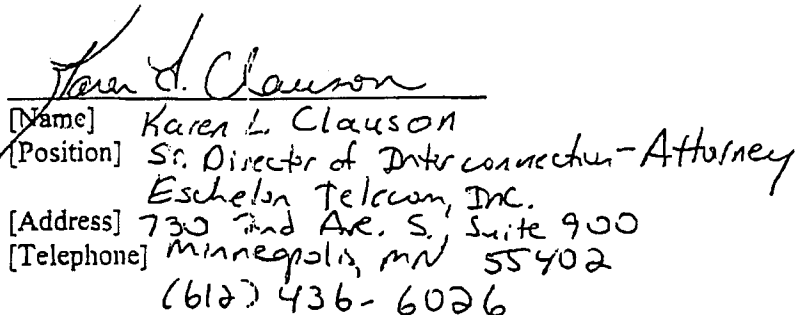 Karen L. Clauson
[Name] Karen L. Clauson
[Position] Sr. Director of Interconnection - Attorney
Eschelon Telecom, Inc.
[Address] 730 2nd Ave. S., Suite 900
[Telephone] Minneapolis, MN 55402
(612) 436-6026